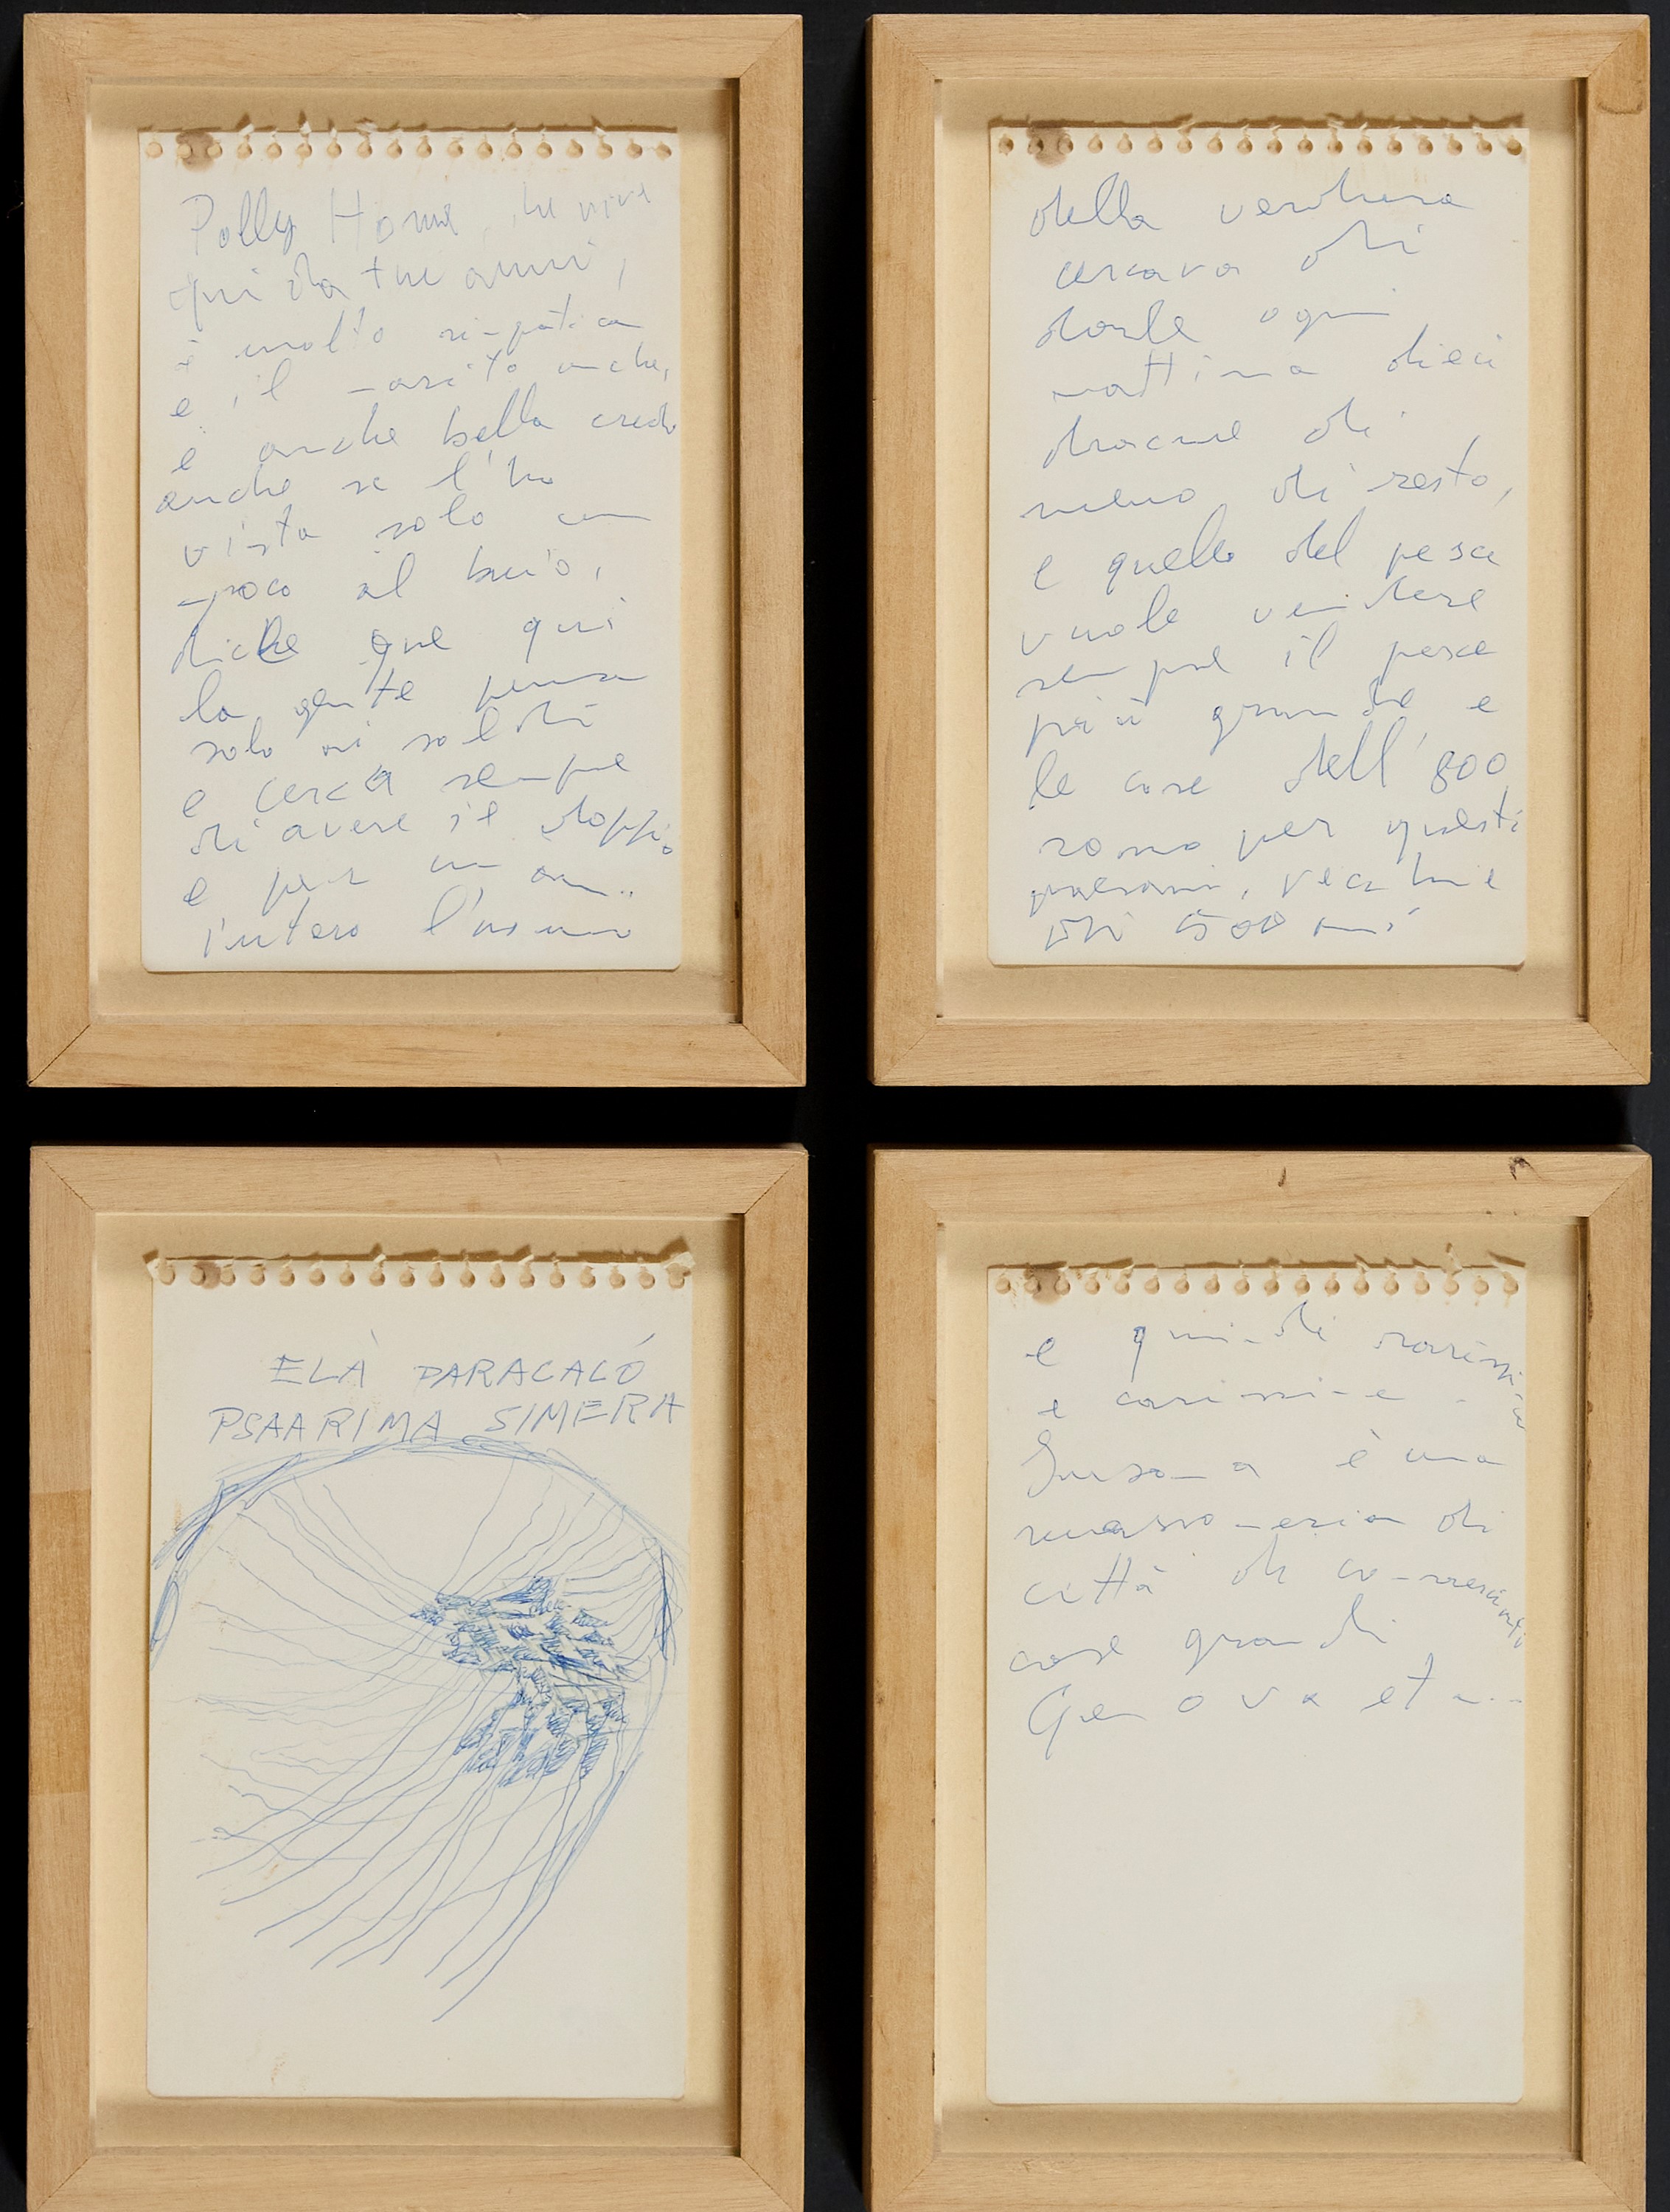 Polly Home, che vive
qui da tre anni,
è molto simpatica
e il marito anche,
è anche bella credo
anche se l'ho
vista solo un
poco al buio,
dice que qui
la gente pensa
solo ai soldi
e cerca sempre
di avere il doppio
e per un anno
intero l'uomo
della verdura
cercava di
darle ogni
mattina dieci
dracme di
meno di resto,
e quello del pesce
vuole vendere
sempre il pesce
più grande e
le case dell'800
sono per questi
paesani, vecchie
di 500 anni
ELÀ PARACALÓ
PSAARIMA SIMERA
e quindi rarissime
e carissime.
è una
di
città di commercianti
case grandi
Genova et...